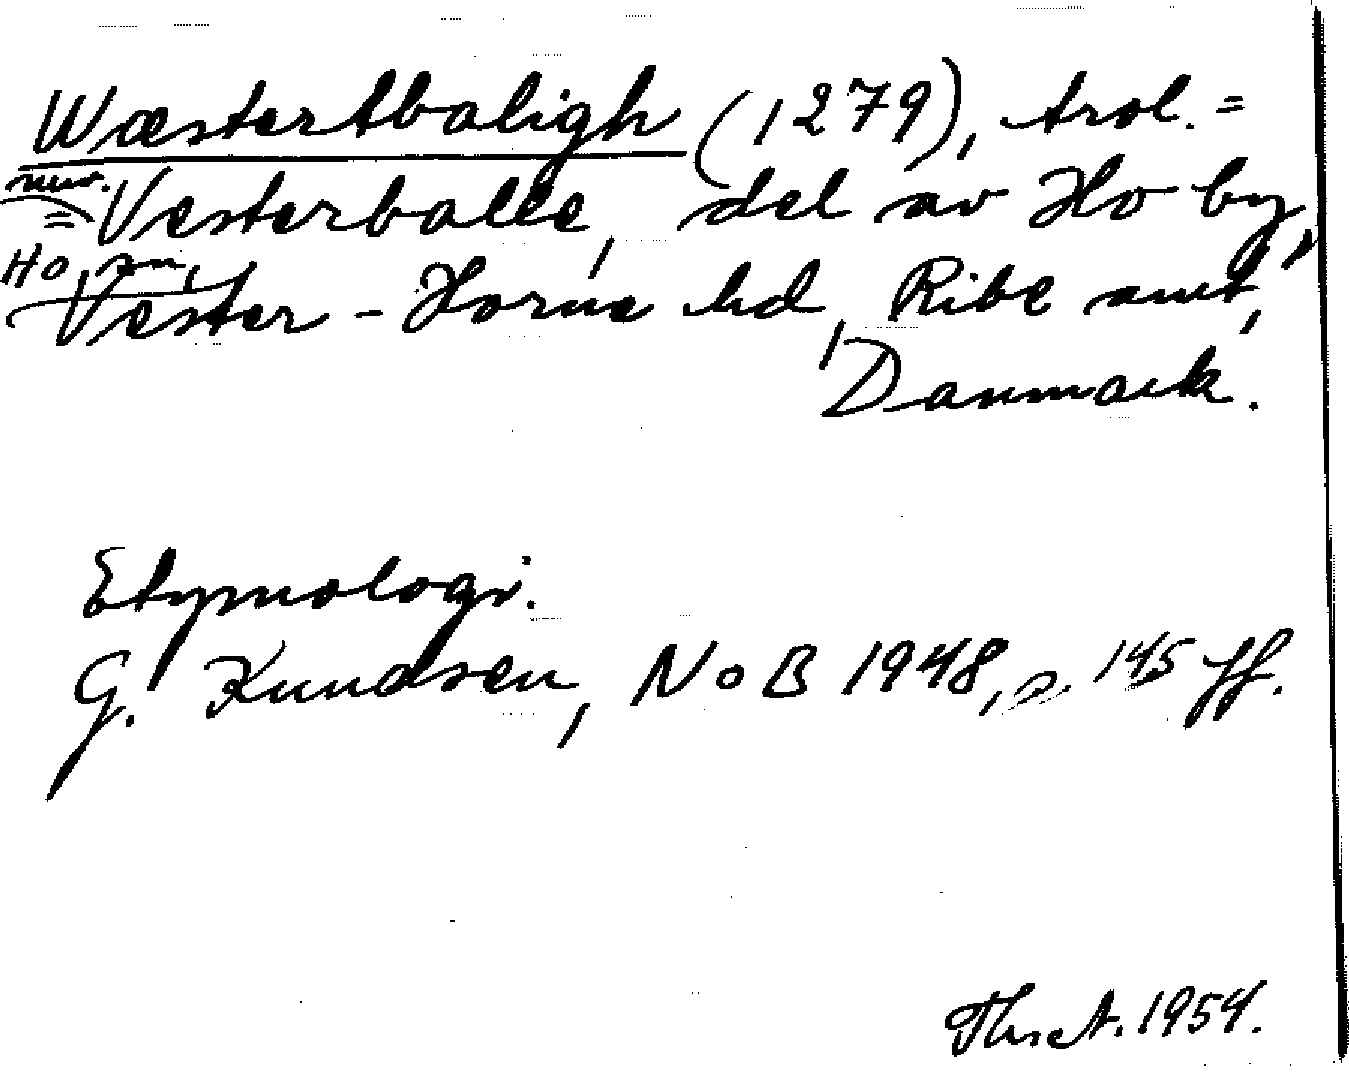 Wæsterbaligh (1279), trol. =
nuv. = Vesterballe, del av Ho by,
Ho sn, Vester-Horne hd, Ribe amt,
Danmark.
Etymologi.
G. Knudsen, NoB 1948, s. 145 ff.
1954.